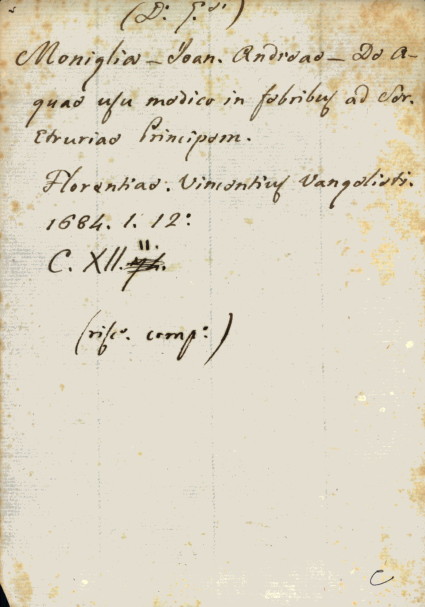 (D: G.s)
Moniglia - Joan. Andreae - De A-
quae usu medico in febribus ad Ser.
Etruriae Principem.
Florentiae. Vincentius Vangelisti.
1684. 1. 12:
C. XII. 11.
(risc. comp.)
C